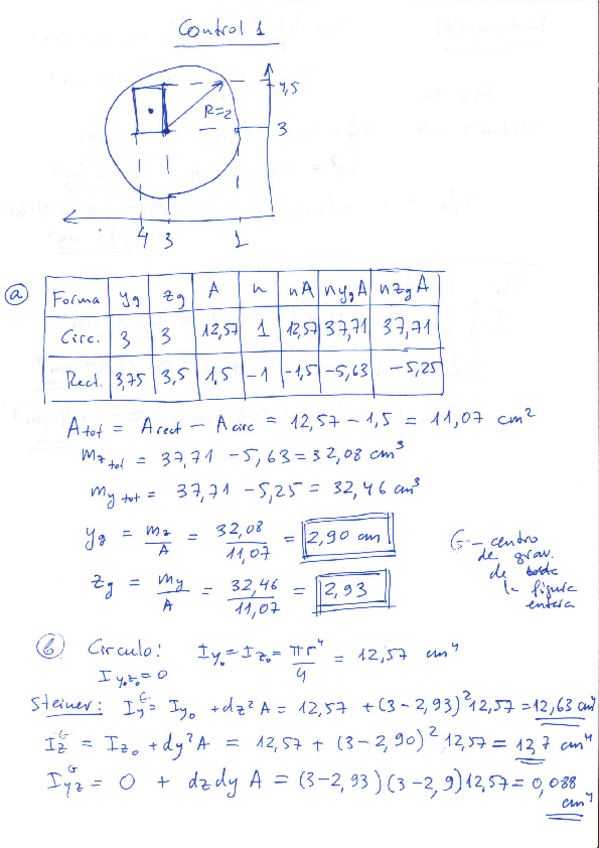 Control 1
4,5
R=2
3
4 3 1
a
Forma yg zg A n nA nygA nzgA
Circ. 3 3 12,57 1 12,57 37,71 37,71
Rect. 3,75 3,5 1,5 -1 -1,5 -5,63 -5,25
Atot = Arect - Acirc = 12,57 - 1,5 = 11,07 cm²
mz tot = 37,71 - 5,63 = 32,08 cm³
my tot = 37,71 - 5,25 = 32,46 cm³
yg = mz/A = 32,08/11,07 = 2,90 cm
zg = my/A = 32,46/11,07 = 2,93
G - centro
de grav.
de
la figura
entera
b Circulo: Iyo = Izo = πr⁴/4 = 12,57 cm⁴
Iyozo = 0
Steiner: Iy^G = Iyo + dz² A = 12,57 + (3-2,93)² 12,57 = 12,63 cm⁴
Iz^G = Izo + dy² A = 12,57 + (3-2,90)² 12,57 = 12,7 cm⁴
Iyz^G = 0 + dz dy A = (3-2,93)(3-2,9)12,57 = 0,088
cm⁴